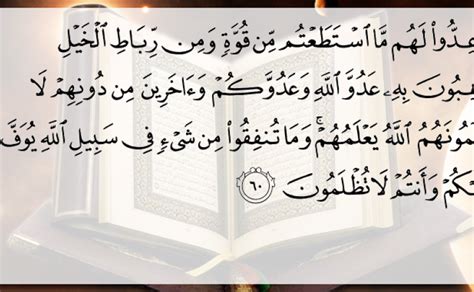 عِدُّوا۟ لَهُم مَّا ٱسْتَطَعْتُم مِّن قُوَّةٍ وَمِن رِّبَاطِ ٱلْخَيْلِ
هِبُونَ بِهِۦ عَدُوَّ ٱللَّهِ وَعَدُوَّكُمْ وَءَاخَرِينَ مِن دُونِهِمْ لَا
لَمُونَهُمُ ٱللَّهُ يَعْلَمُهُمْ ۚ وَمَا تُنفِقُوا۟ مِن شَىْءٍ فِى سَبِيلِ ٱللَّهِ يُوَفَّ
يْكُمْ وَأَنتُمْ لَا تُظْلَمُونَ ٦٠